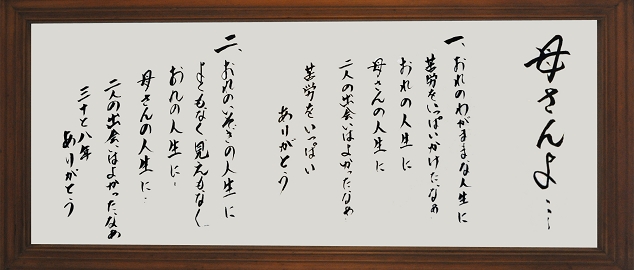 母さんよ…
一、おれのわがままな人生に
苦労をいっぱいかけたなあ
おれの人生に
母さんの人生に
二人の出会いはよかったなあ
苦労をいっぱい
ありがとう
二、おれの、いそぎの人生に
よくもなく見えもなく
おれの人生に…
母さんの人生に…
二人の出会いはよかったなあ
三十と八年
ありがとう